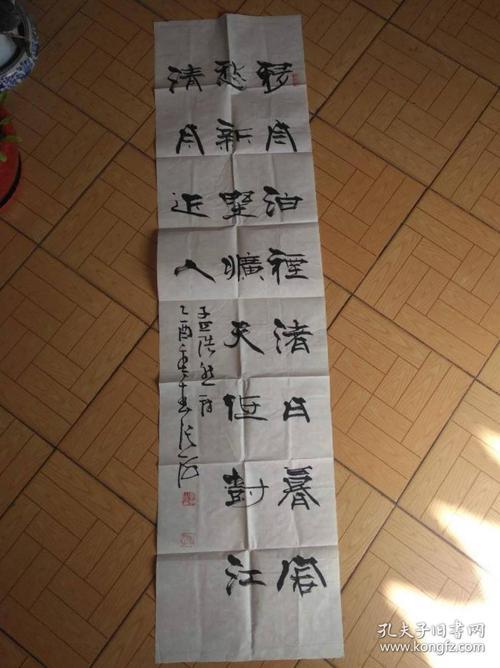 移舟泊煙渚日暮客
愁新野曠天低樹江
清月近人
孟浩然詩
乙酉
孔夫子旧书网
www.kongfz.com